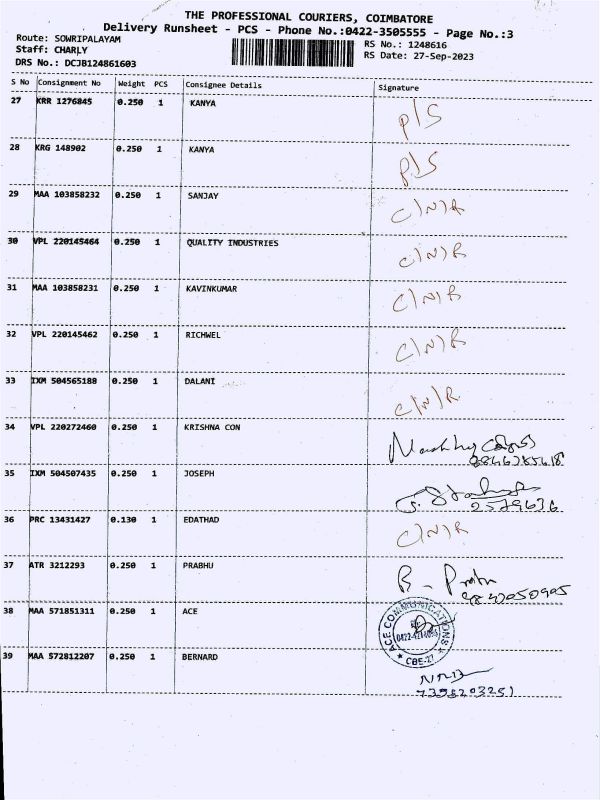 THE PROFESSIONAL COURIERS, COIMBATORE
Delivery Runsheet - PCS - Phone No.:0422-3505555 - Page No.:3
Route: SOWRIPALAYAM
Staff: CHARLY
DRS No.: DCJB124861603
RS No.: 1248616
RS Date: 27-Sep-2023
S No Consignment No Weight PCS Consignee Details Signature
27 KRR 1276845 0.250 1 KANYA P/S
28 KRG 148902 0.250 1 KANYA P/S
29 MAA 103858232 0.250 1 SANJAY C/N/R
30 VPL 220145464 0.250 1 QUALITY INDUSTRIES C/N/R
31 MAA 103858231 0.250 1 KAVINKUMAR C/N/R
32 VPL 220145462 0.250 1 RICHWEL C/N/R
33 IXM 504565188 0.250 1 DALANI C/N/R
34 VPL 220272460 0.250 1 KRISHNA CON
35 IXM 504507435 0.250 1 JOSEPH
2579636
36 PRC 13431427 0.130 1 EDATHAD C/N/R
37 ATR 3212293 0.250 1 PRABHU B.
38 MAA 571851311 0.250 1 ACE
ACE COMMUNICATIONS
CBE-27
39 MAA 572812207 0.250 1 BERNARD
7398203251